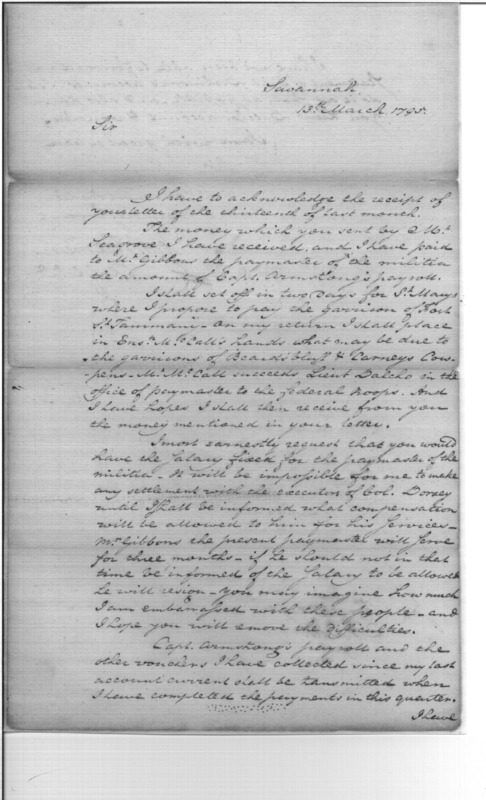 Savannah
13th March 1795.
Sir
I have to acknowledge the receipt of
your letter of the thirteenth of last month.
The money which you sent by Mr.
Seagrove I have received, and I have paid
to Mr. Gibbons the paymaster of the militia
the amount of Capt. Armstrong's payroll.
I shall set off in two Days for St. Marys
where I propose to pay the garrison of Fort
St. Tammany - On my return I shall place
in Ensn. McCall's hands what may be due to
the garrisons of Beards bluff & Carneys Cow-
pens - Mr. McCall succeeds Lieut Dalcho in the
office of paymaster to the federal troops. And
I have hopes I shall then receive from you
the money mentioned in your letter.
I most earnestly request that you would
have the Salary fixed for the paymaster of the
militia - It will be impossible for me to make
any settlement with the executors of Col. Dorsey
until I shall be informed what compensation
will be allowed to him for his services -
Mr. Gibbons the present paymaster will serve
for three months - if he should not in that
time be informed of the Salary to be allowed
he will resign - You may imagine how much
I am embarrassed with these people - and
I hope you will remove the difficulties.
Capt. Armstrong's payroll and the
other vouchers I have collected since my last
account current shall be transmitted when
I have completed the payments in this quarter.
I have